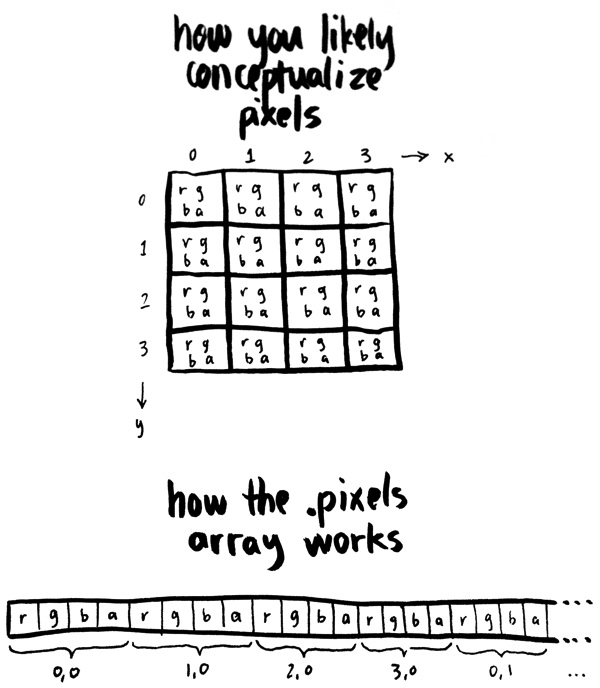 how you likely
conceptualize
pixels
0 1 2 3 → x
0 r g r g r g r g
b a b a b a b a
1 r g r g r g r g
b a b a b a b a
2 r g r g r g r g
b a b a b a b a
3 r g r g r g r g
b a b a b a b a
↓
y
how the .pixels
array works
r g b a r g b a r g b a r g b a r g b a ....
0,0 1,0 2,0 3,0 0,1 ...